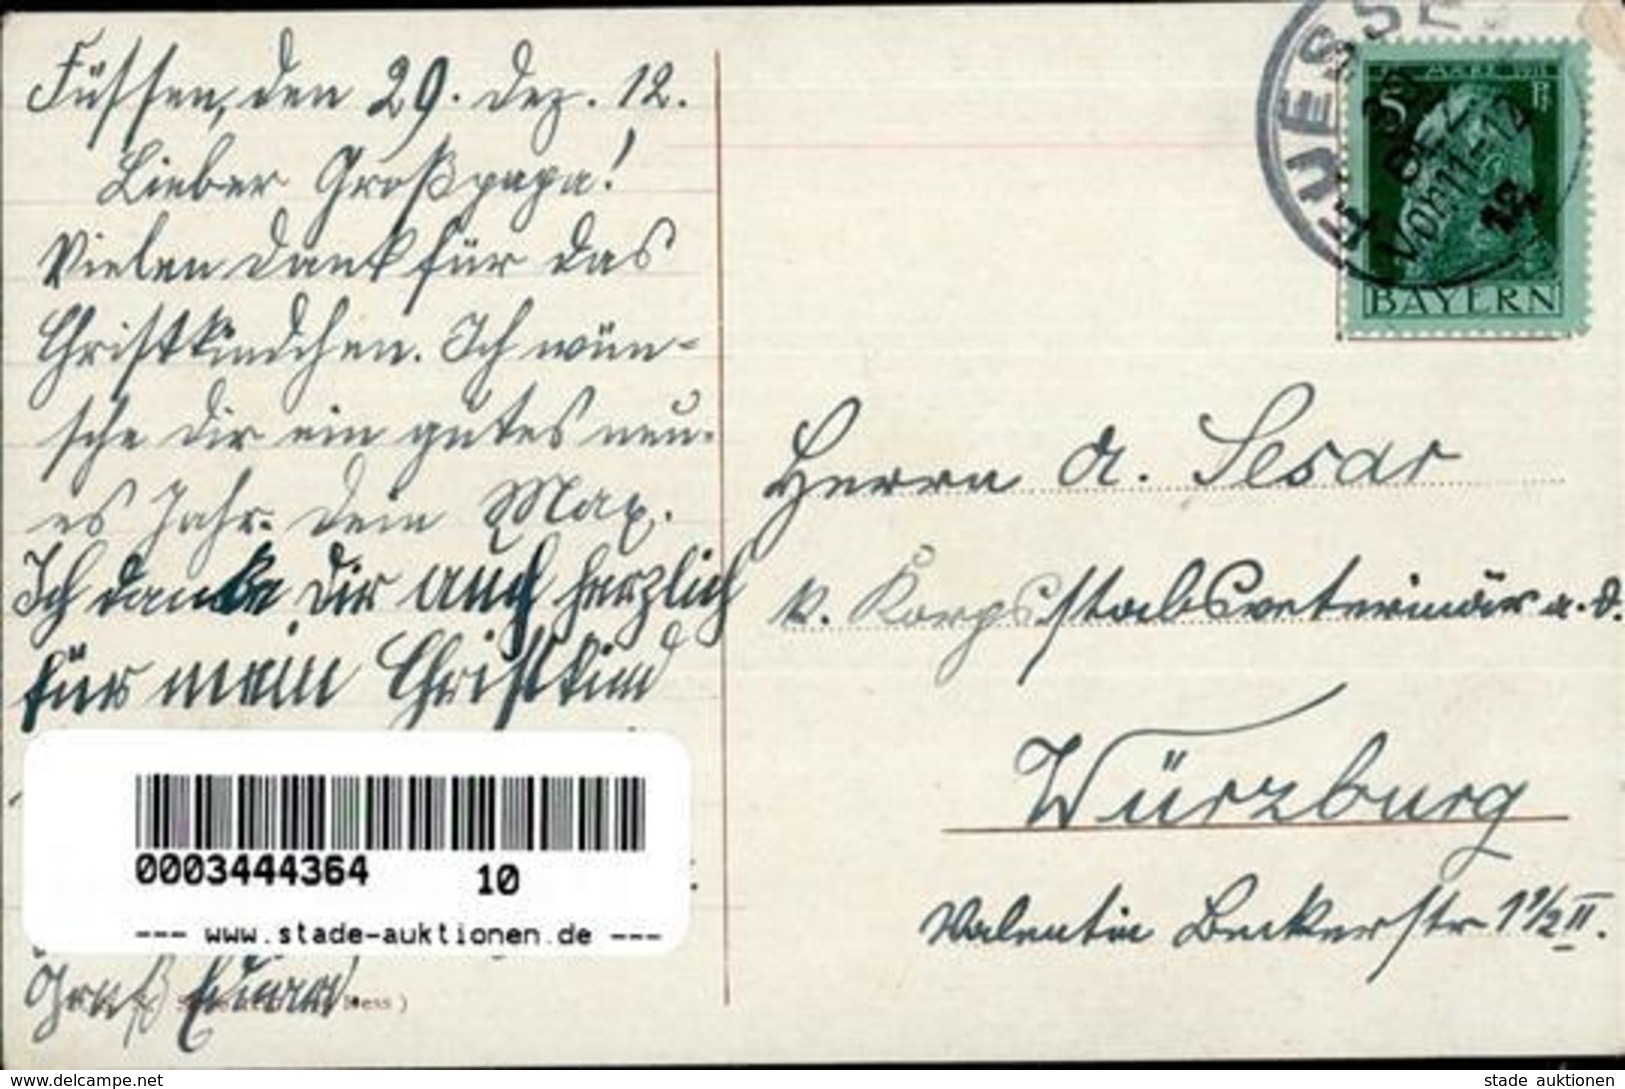 Füssen, den 29. Dez. 12.
Lieber Großpapa!
Vielen Dank für das
Christkindchen. Ich wün-
sche Dir ein gutes neu-
es Jahr. Dein Max.
Ich danke Dir auch herzlich
für mein Christkind
0003444364 10
--- www.stade-auktionen.de ---
Gruß
FUESSEN
Vorm 11-12
12
5 Pf
BAYERN
Herrn A. Sesar
k. Korpsstabsveterinär a. D.
Würzburg
Valentin Beckerstr 1 1/2 II.
www.delcampe.net
stade auktionen